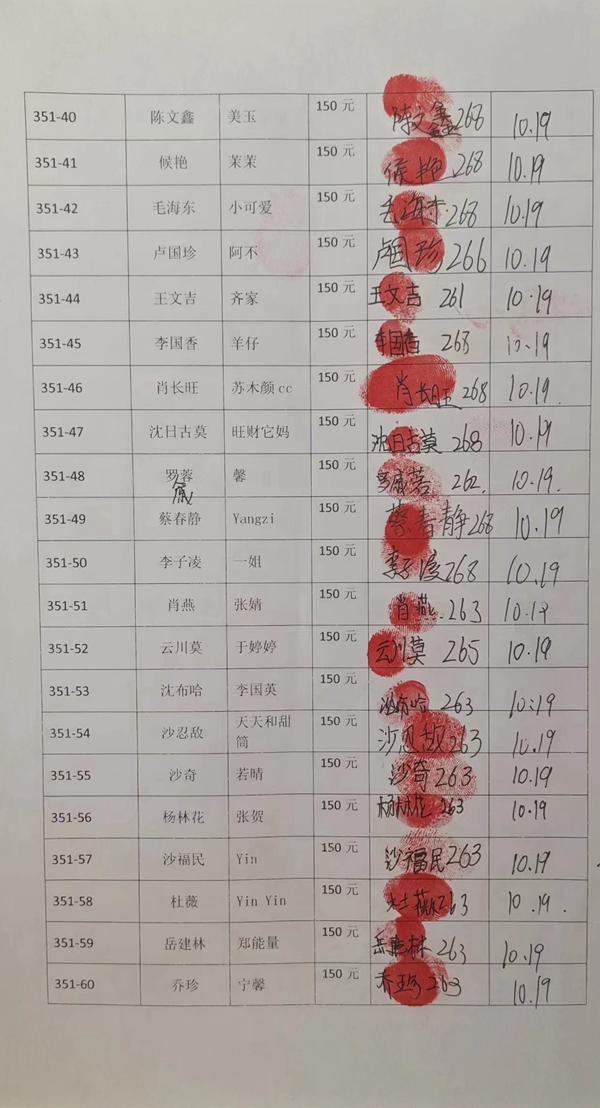 351-40 陈文鑫 美玉 150 元 陈文鑫 268 10.19
351-41 候艳 茉茉 150 元 候艳 268 10.19
351-42 毛海东 小可爱 150 元 毛海东 268 10.19
351-43 卢国珍 阿不 150 元 卢国珍 266 10.19
351-44 王文吉 齐家 150 元 王文吉 261 10.19
351-45 李国香 羊仔 150 元 李国香 268 10.19
351-46 肖长旺 苏木颜 cc 150 元 肖长旺 268 10.19.
351-47 沈日古莫 旺财它妈 150 元 沈日古莫 268 10.19
351-48 罗蓉 馨 150 元 罗蓉 262. 10.19.
351-49 蔡春静 Yangzi 150 元 蔡春静 268 10.19
351-50 李子凌 一姐 150 元 李子凌 268 10.19
351-51 肖燕 张婧 150 元 肖燕. 263 10.19
351-52 云川莫 于婷婷 150 元 云川莫 265 10.19
351-53 沈布哈 李国英 150 元 沈布哈 263 10.19
351-54 沙忍敌 天天和甜 150 元 沙忍敌 263 10.19
筒
351-55 沙奇 若晴 150 元 沙奇 263 10.19
351-56 杨林花 张贺 150 元 杨林花 263 10.19
351-57 沙福民 Yin 150 元 沙福民 263 10.19
351-58 杜薇 Yin Yin 150 元 杜薇 263 10.19.
351-59 岳建林 郑能量 150 元 岳建林 263 10.19
351-60 乔珍 宁馨 150 元 乔珍 263 10.19